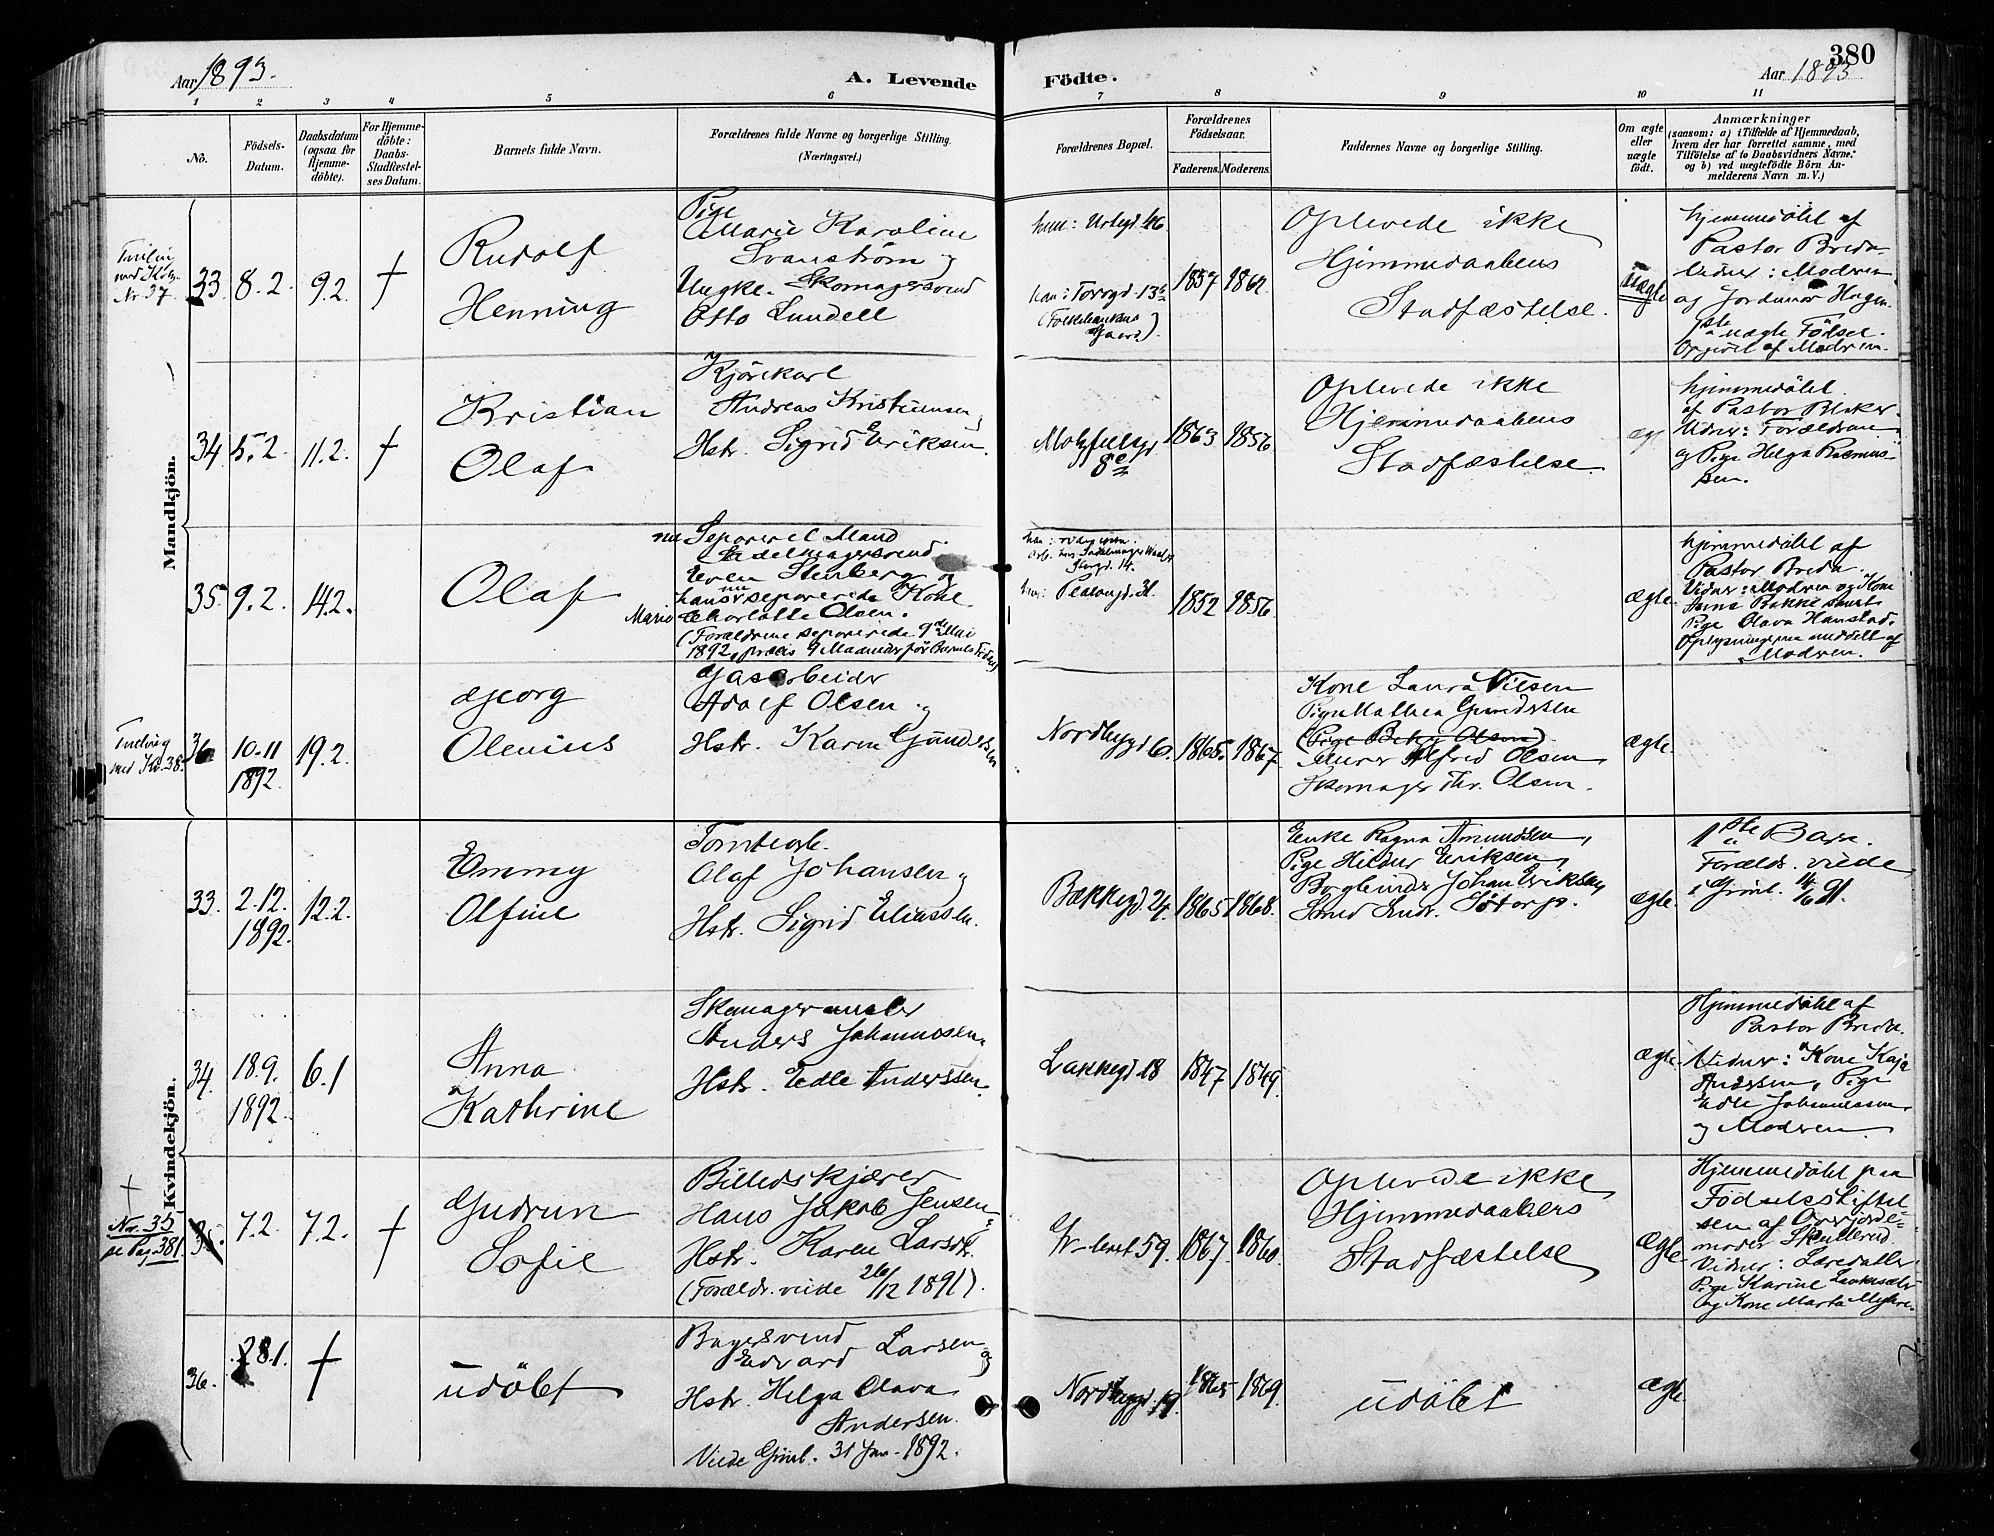 Aar 1893.
A. Levende
Födte.
Aar 1893
380
1 2 3 4 5 6 7 8 9 10 11
No.
Födsels-
Datum.
Daabsdatum
(ogsaa for
Hjemme-
döbte).
For Hjemme-
döbte:
Daabs-
Stadfæstel-
ses Datum.
Barnets fulde Navn.
Forældrenes fulde Navne og borgerlige Stilling.
(Næringsvei.)
Forældrenes Bopæl.
Forældrenes
Födselsaar.
Faderens. Moderens.
Faddernes Navne og borgerlige Stilling.
Om ægte
eller
uægte
födt.
Anmærkninger
(saasom: a) i Tilfælde af Hjemmedaab,
hvem der har forrettet samme, med
Tilföielse af to Daabsvidners Navne;
og b) ved uægtefödte Börn An-
melderens Navn m.V.)
Mandkjön.
Tvilling
med Kv.
Nr 37
33
8.2.
9.2.
†
Rudolf
Henning
Pige
Marie Karoline
Svanström og
Ungk. Skomagersvend
Otto Lundell
hun: Urtegd 46
han: Torvgd. 13
(Folkebankens
Gaard).
1857
1862.
Oplevede ikke
Hjemmedaabens
Stadfæstelse.
uægte
hjemmedöbt af
Pastor Breda.
Vidner: Modren
og Jordmor Hagen
1ste uægte Födsel.
Opgivet af Modren.
34
5.2.
11.2.
†
Kristian
Olaf
Kjörekarl
Andreas Kristiansen og
Hstr. Sigrid Eriksen.
Motzfeldtsgd
8
1863
1856.
Oplevede ikke
Hjemmedaabens
Stadfæstelse.
ægte
hjemmedöbt
af Pastor Blaker.
Vidner: Forældrene
og Pige Helga Rasmus-
sen.
35.
9.2.
14.2.
Olaf
nu Separeret Mand
Sadelmagersvend
Even Stenberg og
hans nu separerede Kone
Marie Charlotte Olsen.
(Forældrene separerede 9de Mai
1892, præcis 9 Maaneder för Barnets Födsel)
Gd. 14.
31
1852
1856.
ægte.
hjemmedöbt af
Pastor Breda.
Vidner: Modren og Kone
Bakke samt
Pige Olava Hanstad.
Oplysningerne meddelt af
Modren.
Tvilling
med Kv. 38.
36
10.11
1892.
19.2.
Georg
Olenius
Gasarbeider
Adolf Olsen og
Hstr. Karen Gundersen
Nordbygd 6.
1865.
1867.
Kone Laura Nilsen
Pige Mathea Gundersen
(Pige Betsy Olsen)
Murer Alfred Olsen
Skomager Olsen.
ægte.
Kvindekjön.
33.
2.12.
1892.
12.2.
Emmy
Olfine
Tomtearb.
Olaf Johansen og
Hstr. Sigrid Eliassen.
Bækkegd 24.
1865
1868.
Enke Ragna Amundsen,
Pige Hildur Eriksen,
Bogbinder Johan Eriksen,
Smed Törtorp.
ægte.
1ste Barn.
Foræld. viede
i Grönl. 14/6 91.
34.
18.9.
1892.
6.1
Anna
Kathrine
Skomagermester
Anders Johannesen
Hstr. Edle Anderssen.
Lakkegd 18
1847
1849.
ægte.
Hjemmedöbt af
Pastor Breda.
Vidner: Kone Kaja
Andersen, Pige
Edle Johannessen
og Modren.
†
Nr. 35
se Pag. 381.
35.
7.2.
7.2.
†
Gudrun
Sofie
Billedskjærer
Hans Jakob Jensen
Hstr. Karen Larsdr.
(Forældr. viede 26/12 1891).
59.
1867.
1860.
Oplevede ikke
Hjemmedaabens
Stadfæstelse
ægte
Hjemmedöbt paa
Födselsstiftel-
sen af Overjorde-
moder Skullerud.
Vidner:
Pige Karine
og Kone Marta Myhre.
36.
28.1.
†
udöbt
Bagersvend
Edvard Larsen og
Hstr. Helga Olava
Andersen.
Viede Grönl. 31 Jan. 1892.
Nordbygd. 19.
1865
1869.
udöbt
ægte.